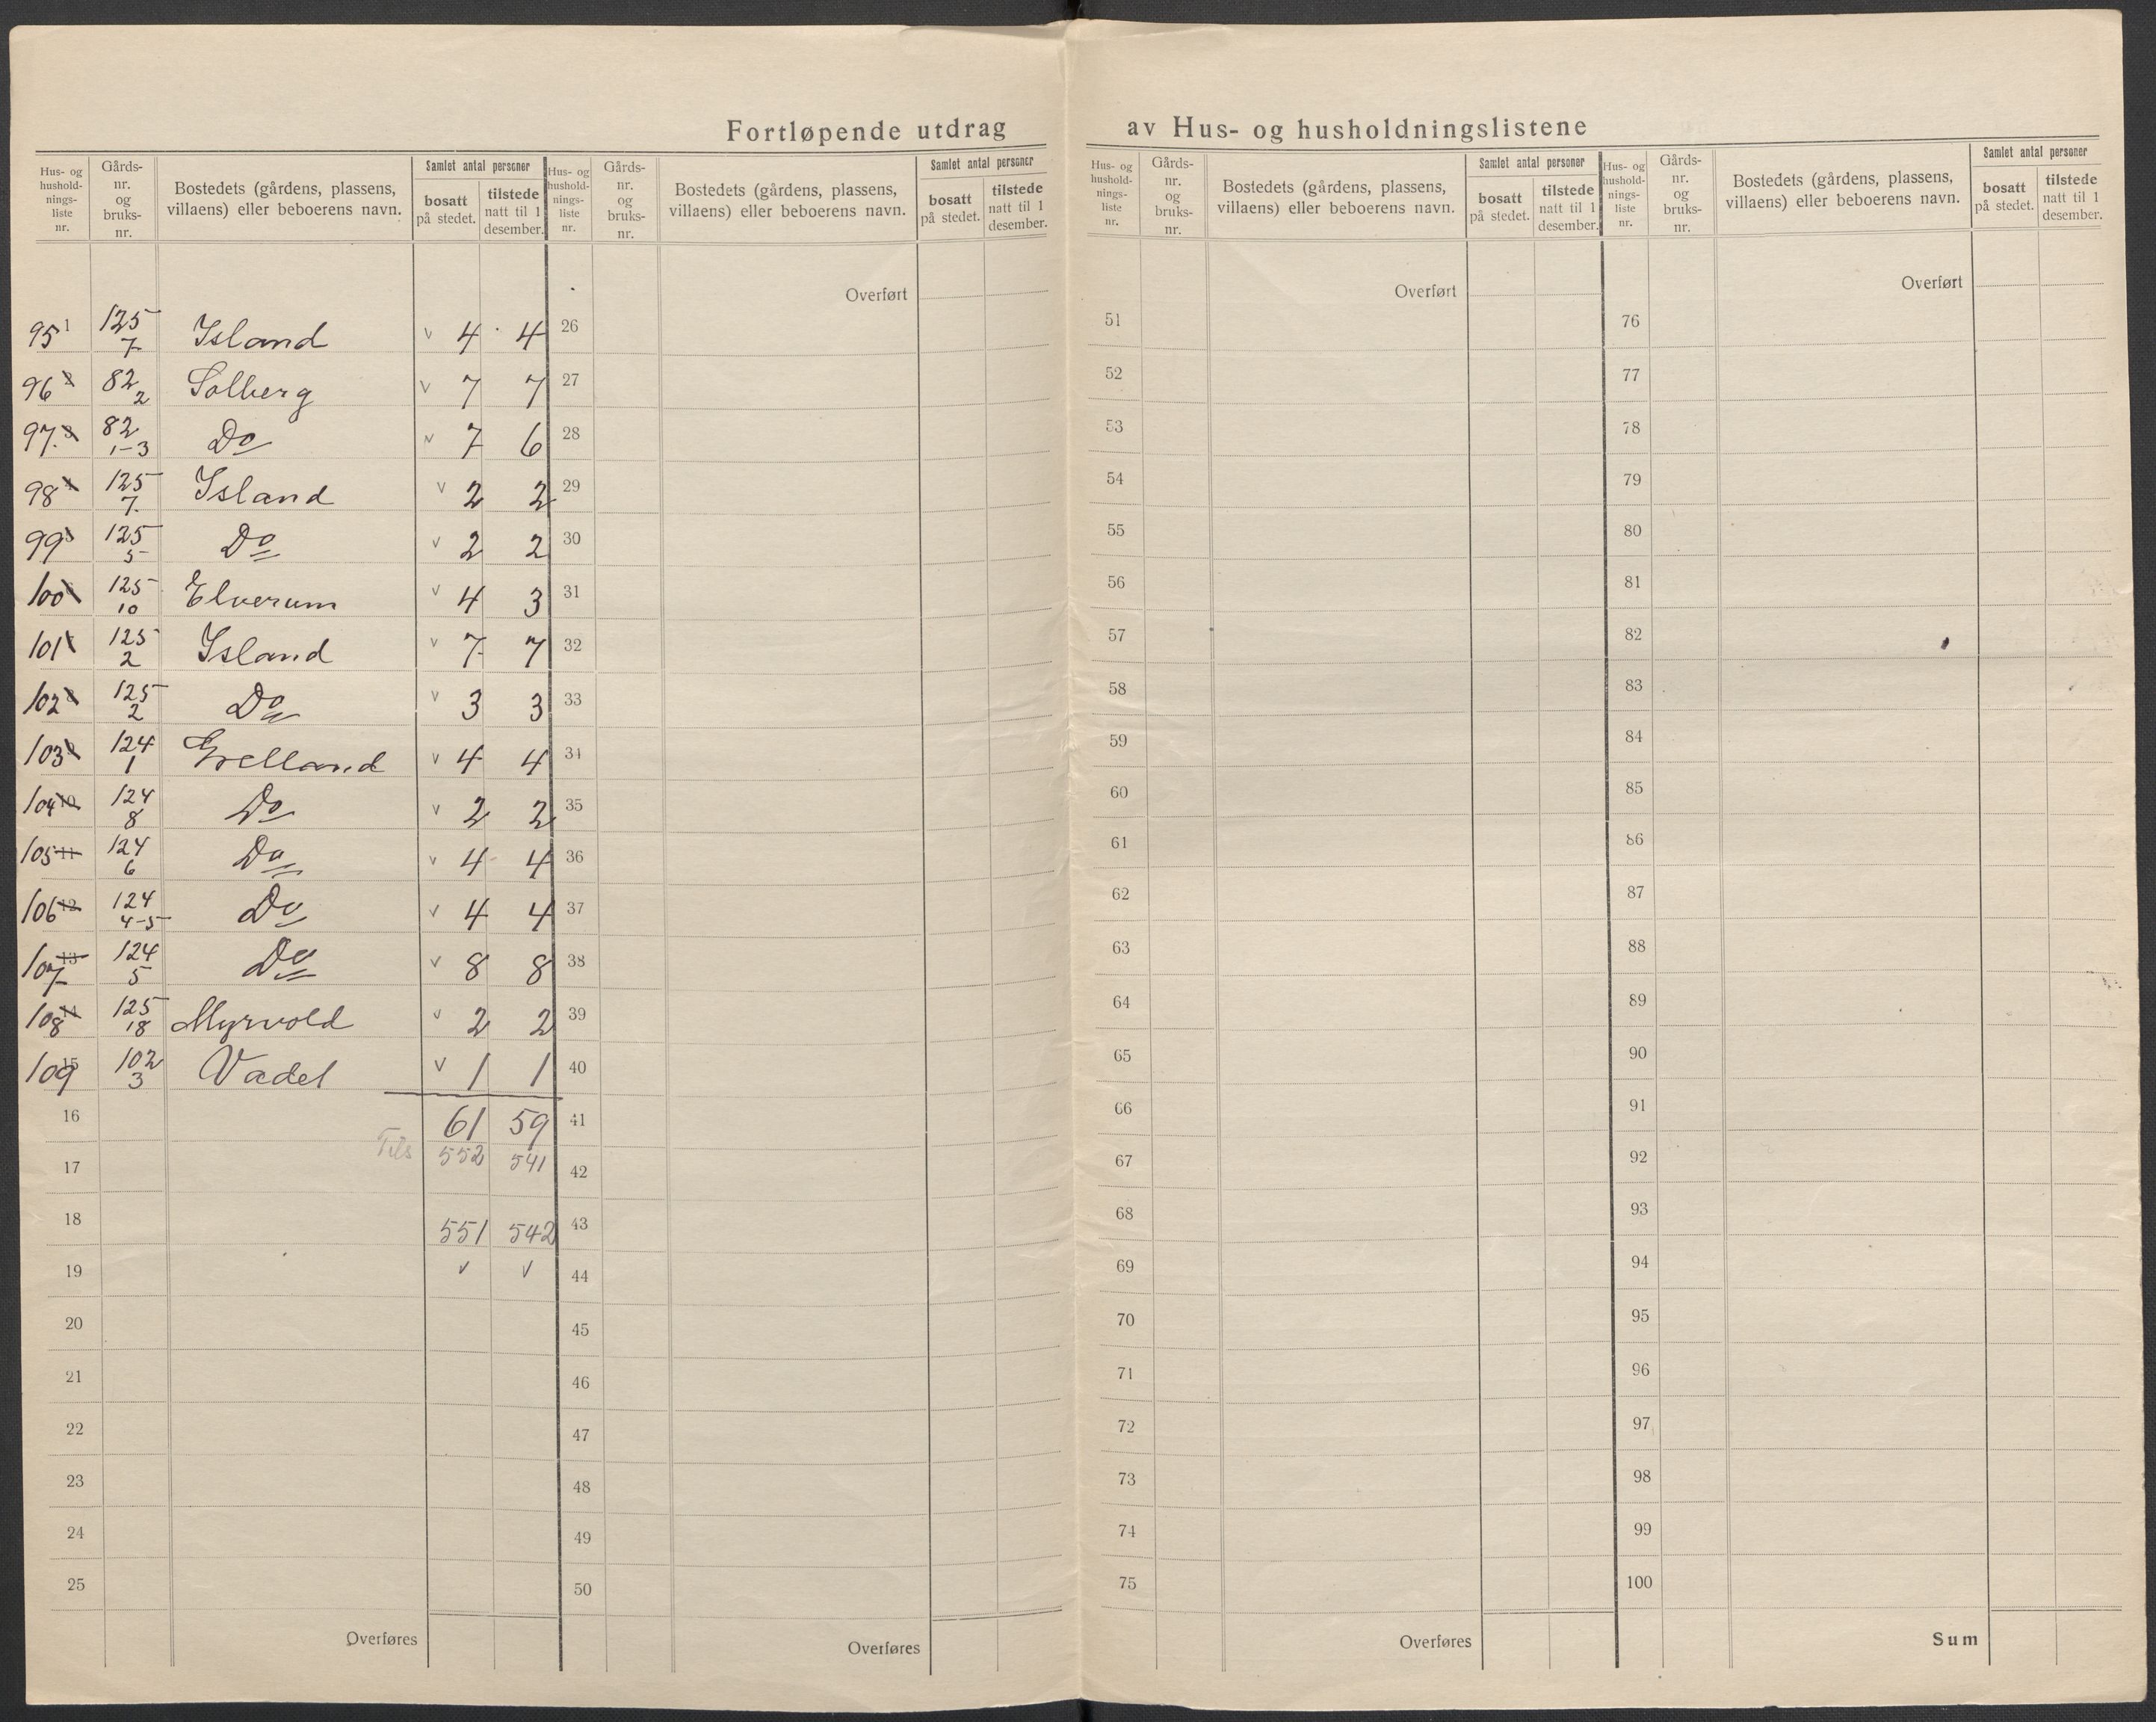 Fortløpende utdrag av Hus- og husholdningslistene
Hus- og hushold- nings- liste nr. Gårds- nr. og bruks- nr. Bostedets (gårdens, plassens, villaens) eller beboerens navn. Samlet antal personer bosatt på stedet. tilstede natt til 1 desember.
Hus- og hushold- nings- liste nr. Gårds- nr. og bruks- nr. Bostedets (gårdens, plassens, villaens) eller beboerens navn. Samlet antal personer bosatt på stedet. tilstede natt til 1 desember.
Hus- og hushold- nings- liste nr. Gårds- nr. og bruks- nr. Bostedets (gårdens, plassens, villaens) eller beboerens navn. Samlet antal personer bosatt på stedet. tilstede natt til 1 desember.
Hus- og hushold- nings- liste nr. Gårds- nr. og bruks- nr. Bostedets (gårdens, plassens, villaens) eller beboerens navn. Samlet antal personer bosatt på stedet. tilstede natt til 1 desember.
Overført Overført Overført
95 1 125 7 Island v 4 4 26 51 76
96 2 82 2 Solberg v 7 7 27 52 77
97 3 82 1-3 Do v 7 6 28 53 78
98 4 125 7 Island v 2 2 29 54 79
99 5 125 5 Do v 2 2 30 55 80
100 6 125 10 Elverum v 4 3 31 56 81
101 7 125 2 Island v 7 7 32 57 82
102 8 125 2 Do v 3 3 33 58 83
103 9 124 1 Grelland v 4 4 34 59 84
104 10 124 8 Do v 2 2 35 60 85
105 11 124 6 Do v 4 4 36 61 86
106 12 124 4-5 Do v 4 4 37 62 87
107 13 124 5 Do v 8 8 38 63 88
108 14 125 18 Myrvold v 2 2 39 64 89
109 15 102 3 Vadel v 1 1 40 65 90
16 61 59 41 66 91
17 Tils 552 541 42 67 92
18 551 542 43 68 93
19 v v 44 69 94
20 45 70 95
21 46 71 96
22 47 72 97
23 48 73 98
24 49 74 99
25 50 75 100
Overføres Overføres Overføres Sum